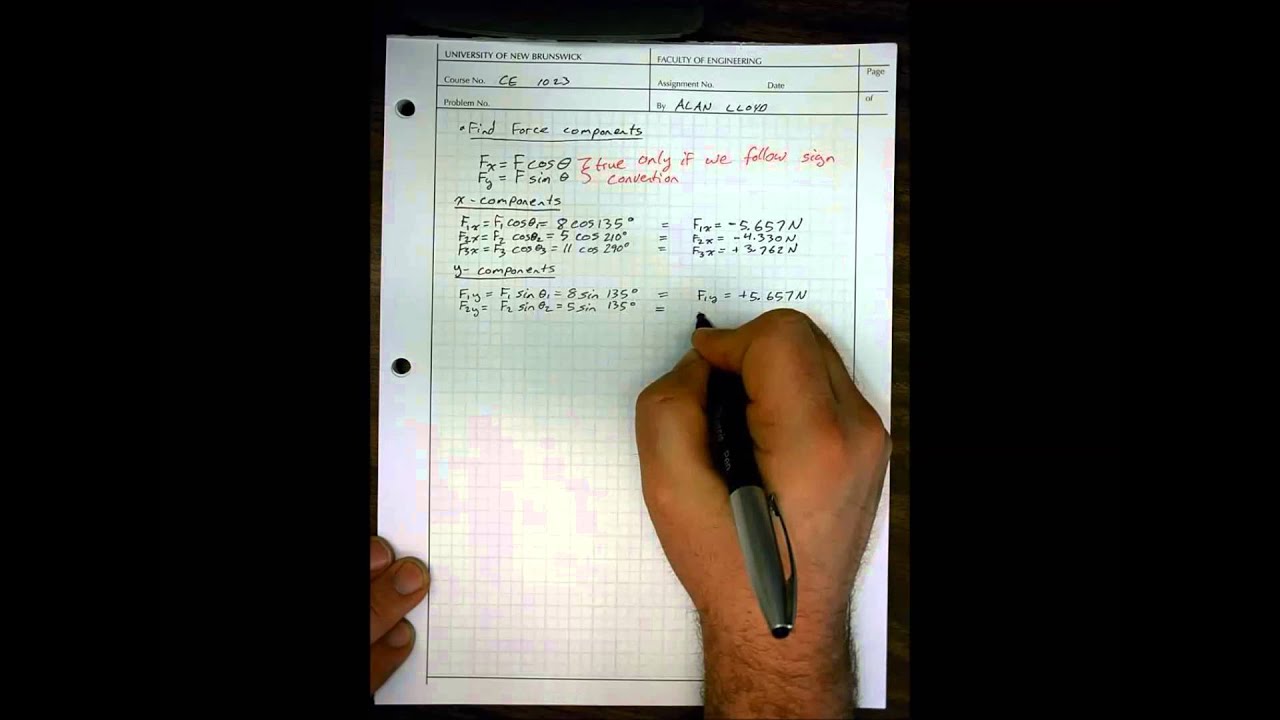 UNIVERSITY OF NEW BRUNSWICK
FACULTY OF ENGINEERING
Page
Course No. CE 1023
Assignment No. Date
of
Problem No.
By ALAN LLOYD
• Find Force components
Fx = F cos θ } true only if we follow sign
Fy = F sin θ } convention
x - components
F1x = F1 cosθ1 = 8 cos 135° = F1x = -5.657N
F2x = F2 cosθ2 = 5 cos 210° = F2x = -4.330N
F3x = F3 cosθ3 = 11 cos 290° = F3x = +3.762N
y - components
F1y = F1 sinθ1 = 8 sin 135° = F1y = +5.657N
F2y = F2 sinθ2 = 5 sin 135° =